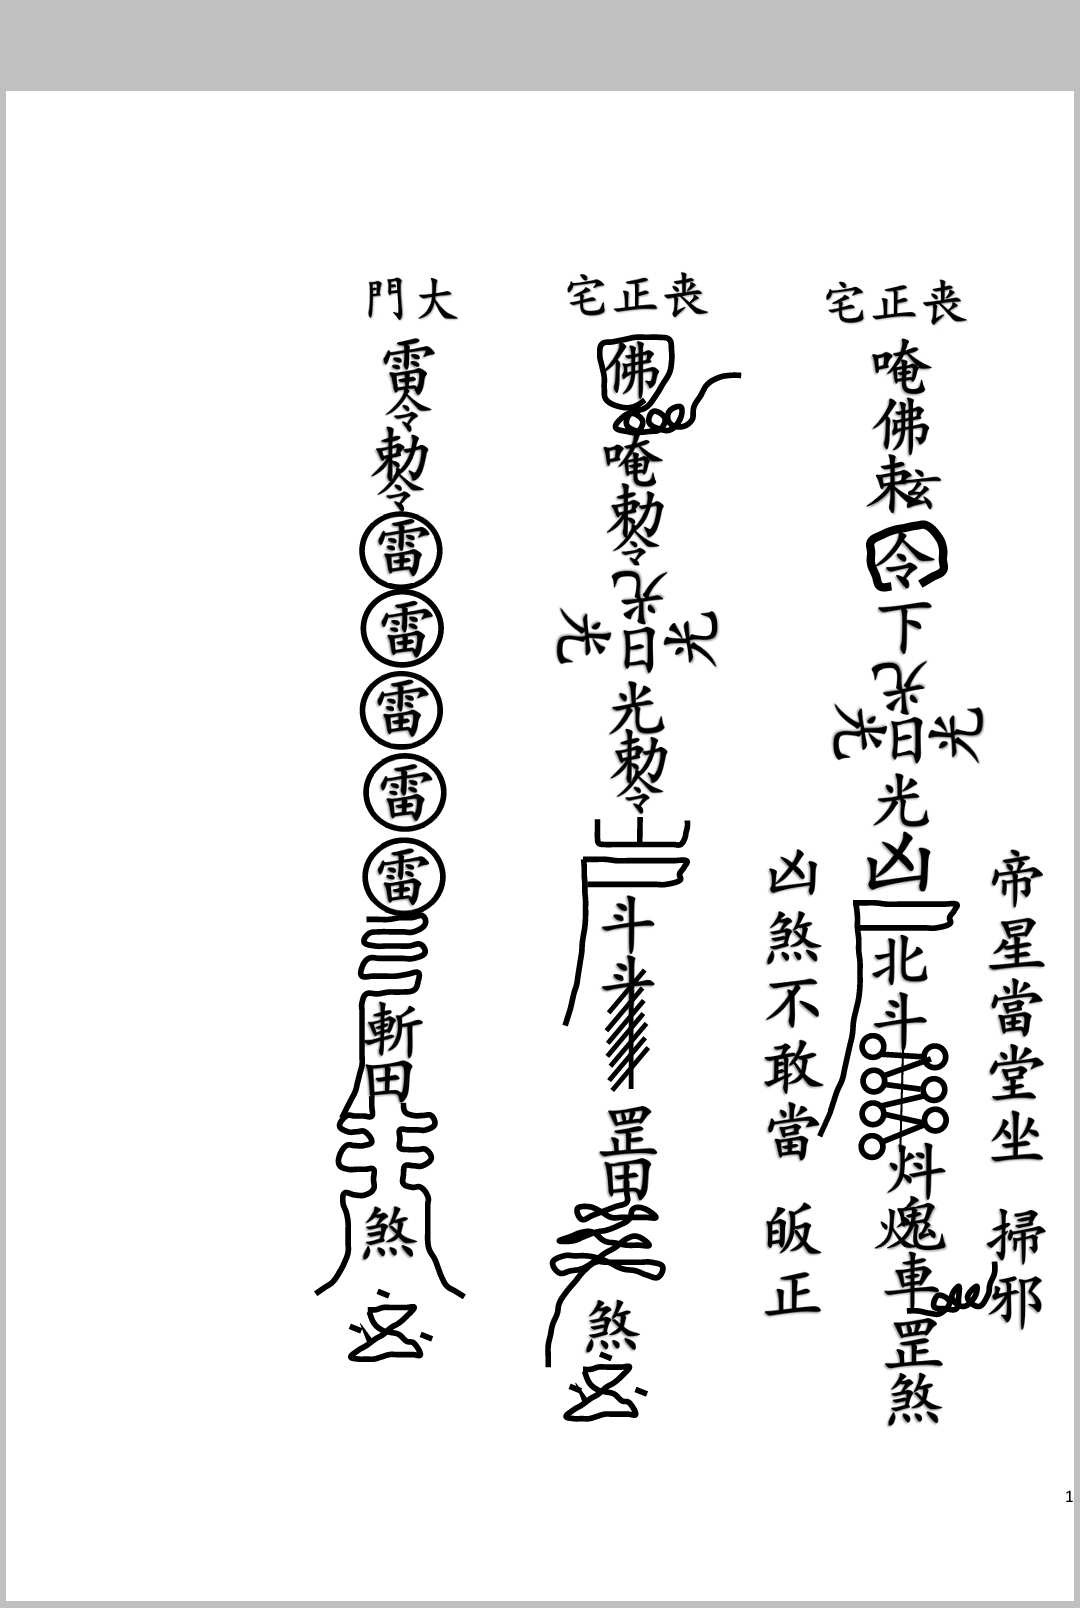 喪正宅
帝星當堂坐 掃邪
唵佛勅令下光光日光光凶北斗炓魂車罡煞
凶煞不敢當 皈正
喪正宅
佛唵勅令光光日光光勅令山斗斗罡田煞
大門
雷令勅令雷雷雷雷雷斬田煞
1